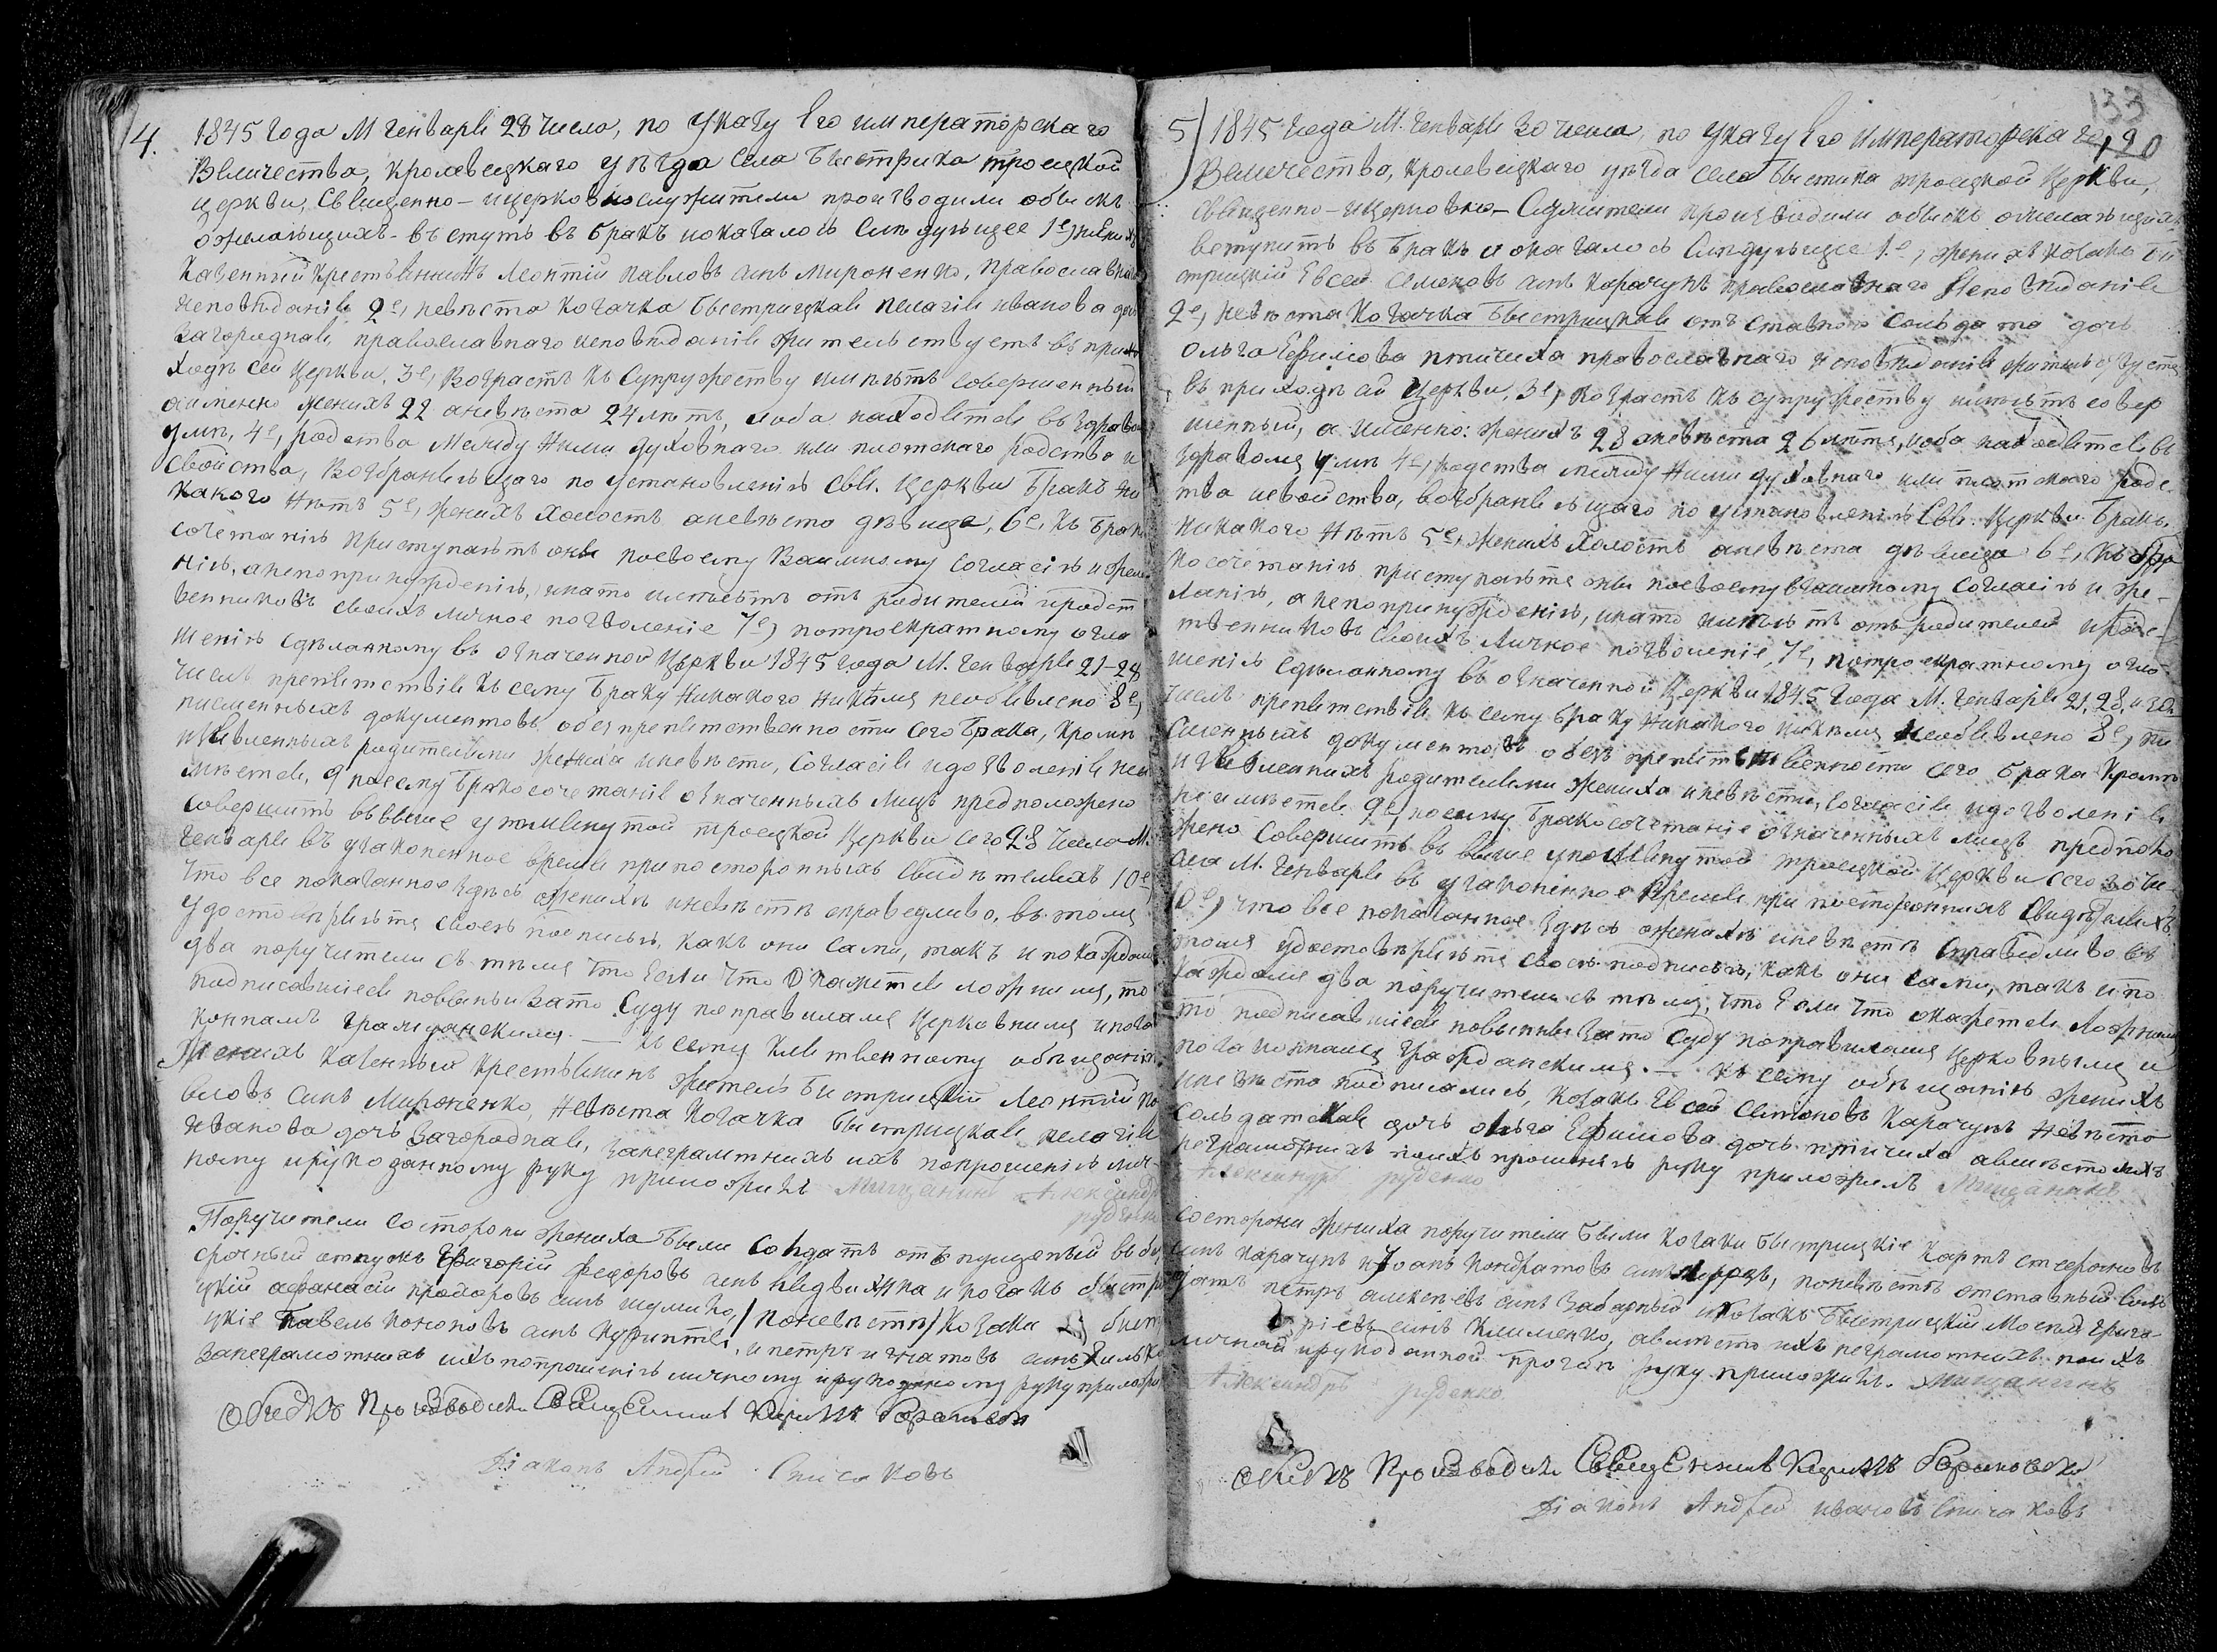 4. 1845 года М Генваря 28 числа, по указу Его императорскаго
Величества, Кролевецкаго уѣзда села Быстрика троецкой
церкви, Священно-ицерковнослужители производили обыскъ
ожелающихъ вступить въ бракъ иоказалось Слѣдующее 1е, женихъ
Казенный Крестьянинъ Леонтій Павловъ сынъ Мироненко, православнаго
исповѣданія 2е, невѣста козачка Быстрицкая пелагія иванова дочь
Загородная православнаго исповѣданія жительствуетъ въ прихо
ходѣ сей церкви, 3е, Возрастъ къ Супружеству имѣютъ совершенный
аименно женихъ 22 аневѣста 24 лѣтъ, иоба находятся въ здравомъ
умѣ, 4е, родства Между Ними духовнаго или плотскаго родства и
Свойства, Возбраняющаго по установленію Свя. церкви бракъ ни
какого Нѣтъ 5е, женихъ холостъ аневѣста дѣвица, 6е, къ брако
сочетанію приступаютъ они посвоему Взаимному Согласію ижела
нію, анепопринужденію, инато имѣютъ отъ родителей иродст
венниковъ своихъ личное позволеніе 7е) потроекратному огла
шенію сдѣланному въ означенной церкви 1845 года М. Генваря 21-28
числъ препятствія къ сему браку Никакого никѣмъ необъявлено 8е,
писменныхъ документовъ обезпрепятственности сего брака, кромѣ
изъявленныхъ родителями жениха иневѣсты, Согласія идозволенія не и
мѣется, 9 посему бракосочетаніе означенныхъ лицъ предположено
совершить ввыше упомянутой троецкой церкви сего 28 числа М.
Генваря въ узаконенное время припостороннихъ свидѣтеляхъ 10е)
Что все показанное здѣсь ожених иневѣстѣ справедливо, въ томъ
удостовѣряютъ своею подписью, какъ они сами, такъ и покаждомъ
два поручители съ тѣмъ что если что окажется ложнымъ, то
подписавшіеся повинны зато Суду поправиламъ церковнымъ ипоза
коннамъ гражданскимъ. — къ сему клятвенному обѣщанію
Женихъ казенный крестьянинъ жытель быстрицкій Леонтій па
вловъ сынъ Мироненко, невѣста козачка быстрицкая пелагія
иванова дочь Загородная, занеграмтныхъ ихъ попрошенію лич-
ному ирукоданному руку приложилъ Мищанинъ Александръ
руденко
Поручители состороны жениха были солдатъ отъпущеный въ без
срочный отпускъ Григорій федоровъ сынъ и козакъ быстри
цкій афанасій сынъ шулико, / поневѣстѣ / козаки быстри
цкіе Павелъ кононовъ сынъ, и петръ игнатовъ сынъ
Занеграмотныхъ ихъ попрошенію личному ирукоданному руку приложилъ
Обыскъ Производили Священникъ Кириллъ
Діаконъ Андрей Списаковъ

133
120
5) 1845 года М. Генваря 30 числа, по указу Его императорскаго
Величества, Кролевецкаго уѣзда села быстрика троецкой церкви,
священно-ицерковно-Служители производили обыскъ ожелающихъ
вступить въ бракъ и оказалось Слѣдующее 1е, женихъ козакъ бы
стрицкій Евсей Семеновъ сынъ Карачунъ православнаго исповѣданія
2е, невѣста козачка быстрицкая отъставного солдата дочь
ольга Ефимова птичиха православнаго исповѣданія жительствуетъ
въ приходѣ сей церкви, 3е, возрастъ къ супружеству имѣютъ совер
шенный, а именно: женихъ 28 аневѣста 26 лѣтъ, иоба находятся въ
здравомъ умѣ 4е, родства между Ними духовнаго или плотскаго родс
тва исвойства, возбраняющаго по установленію Свя. церкви бракъ
никакого Нѣтъ 5е, женихъ холостъ аневѣста дѣвица 6е, къ бра
косочетанію приступаютъ они посвоему взаимному согласію и же-
ланію, анепопринужденію, инато имѣютъ отъ родителей иродс-
твенниковъ своихъ личное позволеніе, 7е, потроекратному огла-
шенію сдѣланному въ означенной церкви 1845 года М. Генваря 21, 28, и 30
числъ препятствія къ сему браку никакого никѣмъ необъявлено 8е, пи
сменныхъ документовъ обезъ препятственности сего брака кромѣ
изъявленныхъ родителями жениха иневѣсты, согласія идозволенія
не имѣется 9е, посему бракосочетаніе означенныхъ лицъ предполо
жено совершить въ выше упомянутой троецкой церкви сего 30 чи-
сла М. Генваря въ узаконенное время при постороннихъ свидѣтеляхъ
10е, что все показанное здѣсь ожених иневѣстѣ справидливо въ
томъ удостовѣряютъ своею подписью, какъ они сами, такъ ипо
каждомъ два поручители съ тѣмъ, что Если что окажется ложнымъ
то подписавшіеся повинны зато Суду поправиламъ церковнымъ и
позаконнамъ гражданскимъ. — къ сему обѣщанію женихъ
иневѣста подписались, козакъ Евсей Семеновъ Карачунъ невѣста
Солдатская дочь ольга Ефимова дочь птичиха авмѣсто ихъ
неграмотныхъ поихъ прошенію руку приложилъ Мищанинъ
Александръ руденко
состороны жениха поручители были козаки быстрицкіе
сынъ карачунъ иІоанъ кондратовъ сынъ, поневѣстѣ отставный сол
датъ петръ алексѣевъ сынъ Забарный икозакъ быстрицкій Мосѣй григо-
ріевъ сынъ клименко, авмѣсто ихъ неграмотныхъ поихъ
личной ирукоданной прозбѣ руку приложилъ. Мищанинъ
Александръ руденко
Обыскъ Производили Священникъ Кириллъ
Діаконъ Андрей ивановъ Списаковъ